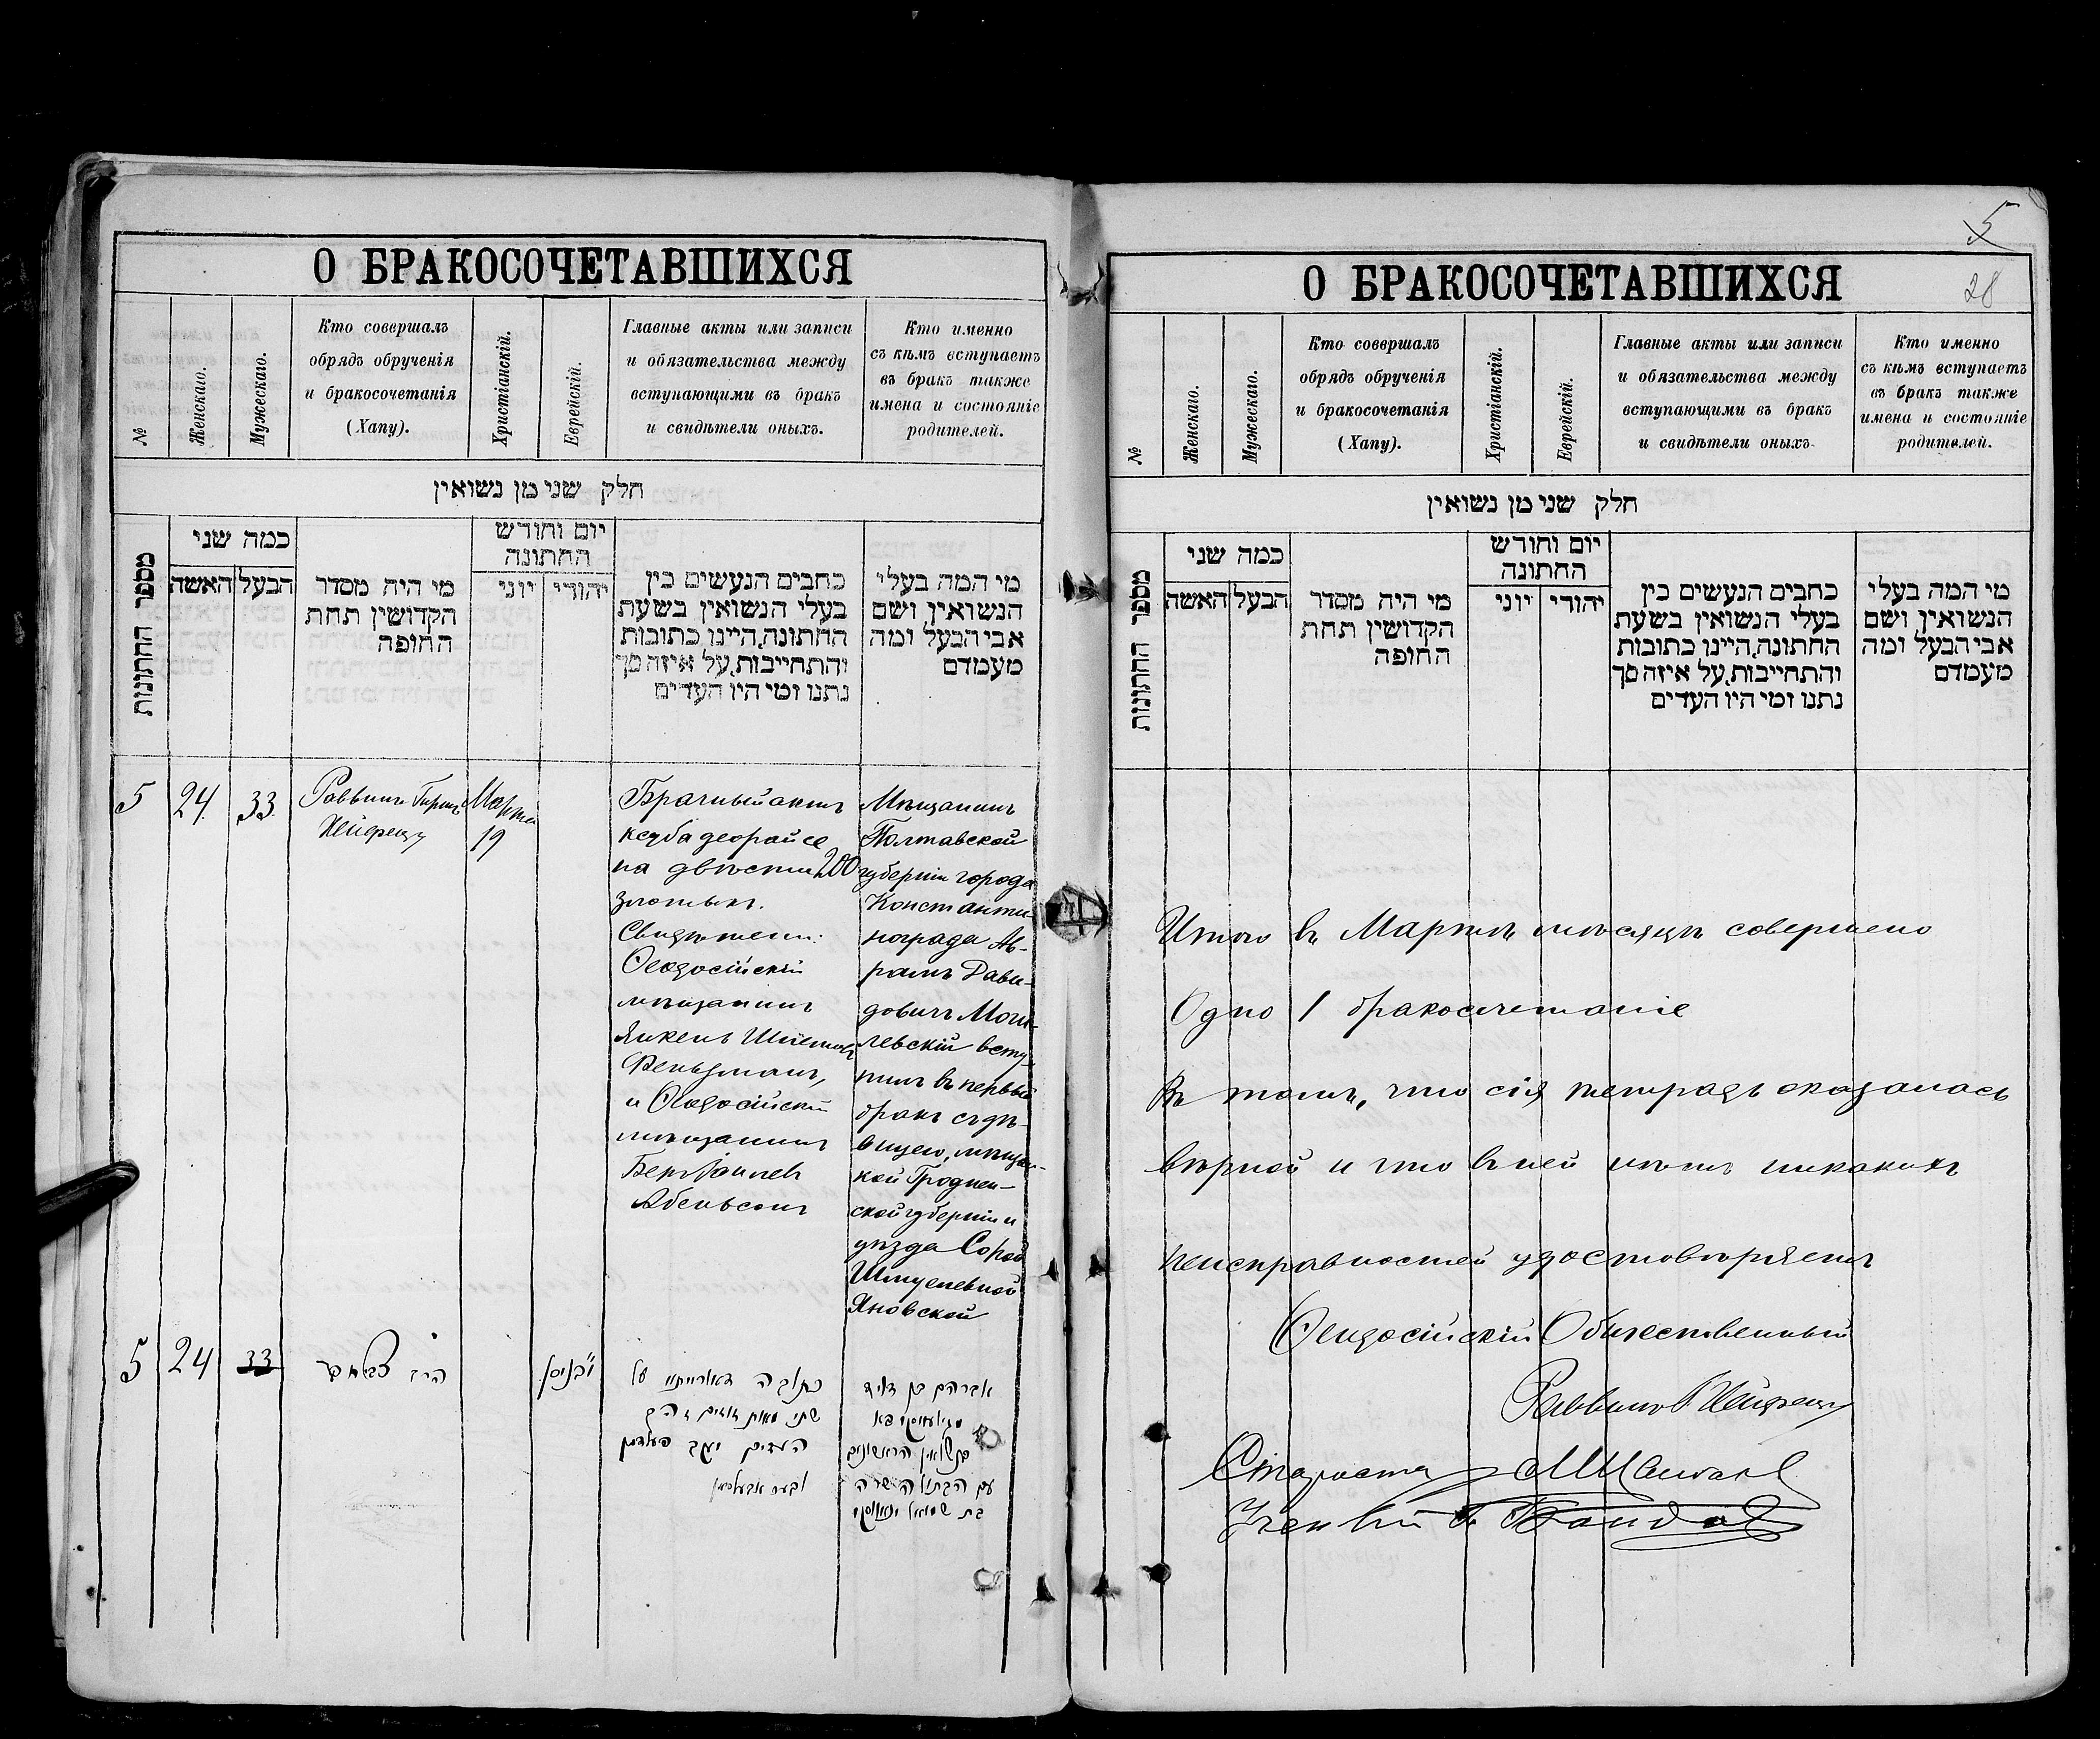 О БРАКОСОЧЕТАВШИХСЯ
№
Женскаго.
Мужескаго.
Кто совершалъ
обрядъ обрученія
и бракосочетанія
(Хапу).
Христіанскій.
Еврейскій.
Главные акты или записи
и обязательства между
вступающими въ бракъ
и свидѣтели оныхъ.
Кто именно
съ кѣмъ вступаетъ
въ бракъ также
имена и состояніе
родителей.
חלק שני מן נשואין
מספר החתונות
כמה שני
האשה
הבעל
מי היה מסדר
הקדושין תחת
החופה
יום וחודש
החתונה
יוני
יהודי
כתבים הנעשים בין
בעלי הנשואין בשעת
החתונה, היינו כתובות
והתחייבות, על איזה סך
נתנו ומי היו העדים
מי המה בעלי
הנשואין ושם
אבי הבעל ומה
מעמדם
5
24.
33.
Раввинъ Гиршъ
Хейфецъ
Марта
19
Брачный актъ
ксуба деорайсе
на двѣсти 200
злотыхъ.
Свидѣтели:
Ѳеодосійскій
мѣщанинъ
Янкель
Фельдманъ,
и Ѳеодосійскій
мѣщанинъ
Беръ
Абельсонъ
Мѣщанинъ
Полтавской
губерніи города
Константи-
нограда Ав-
рамъ Дави-
довичъ Моги-
левскій всту-
пилъ въ первый
бракъ съ дѣ-
вицею, мѣщан-
кой Гроднен-
ской губерніи и
уѣзда Сорой
Шмуелевной
Яновской
5
24
33
הרב
י"ב ניסן
כתובה דאורייתא על
שתי מאות זהובים
העדים יעקב פעלדמאן
אבעלסאן
אברהם בן דוד
מאגילעווסקי בא
בנשואין הראשונים
עם הבתולה שרה
בת שמואל יאנאווסקי
5
28
О БРАКОСОЧЕТАВШИХСЯ
№
Женскаго.
Мужескаго.
Кто совершалъ
обрядъ обрученія
и бракосочетанія
(Хапу).
Христіанскій.
Еврейскій.
Главные акты или записи
и обязательства между
вступающими въ бракъ
и свидѣтели оныхъ.
Кто именно
съ кѣмъ вступаетъ
въ бракъ также
имена и состояніе
родителей.
חלק שני מן נשואין
מספר החתונות
כמה שני
האשה
הבעל
מי היה מסדר
הקדושין תחת
החופה
יום וחודש
החתונה
יוני
יהודי
כתבים הנעשים בין
בעלי הנשואין בשעת
החתונה, היינו כתובות
והתחייבות, על איזה סך
נתנו ומי היו העדים
מי המה בעלי
הנשואין ושם
אבי הבעל ומה
מעמדם
Итого въ Мартѣ мѣсяцѣ совершено
Одно 1 бракосочетаніе
Въ томъ, что сія тетрадь оказалась
вѣрной и что въ ней нѣтъ никакихъ
неисправностей удостовѣряетъ
Ѳеодосійскій Общественный
Раввинъ Хейфецъ
Староста